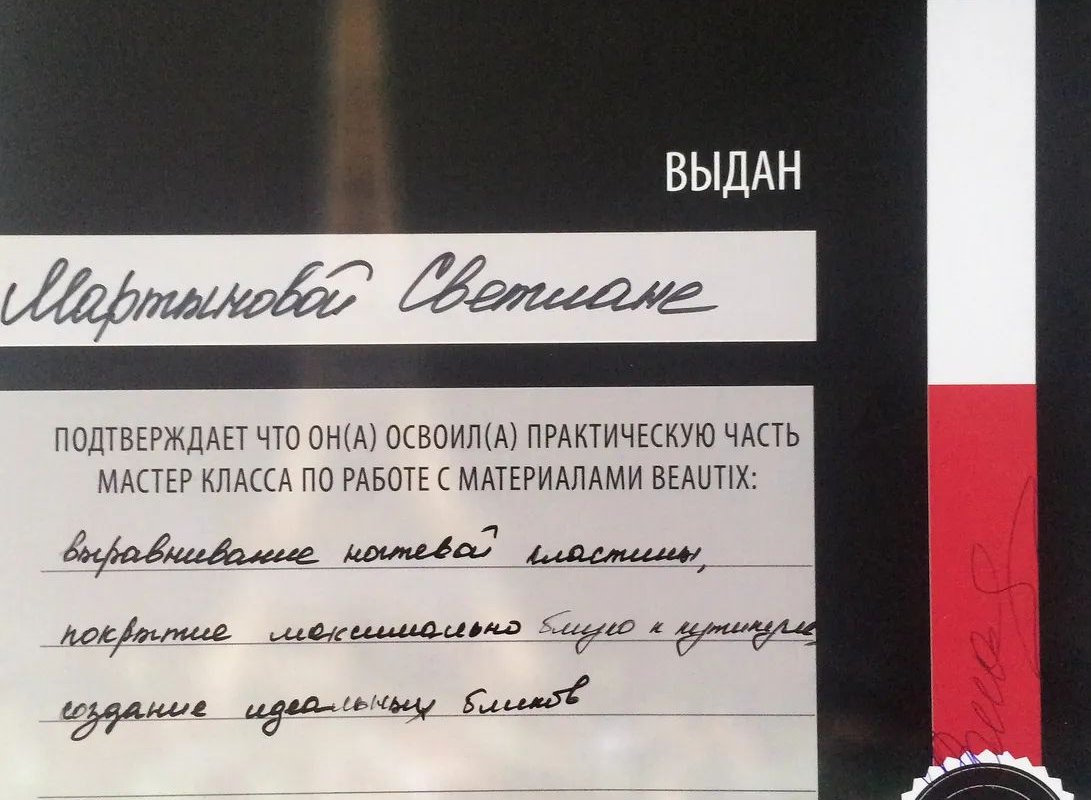 ВЫДАН
Мартыновой Светлане
ПОДТВЕРЖДАЕТ ЧТО ОН(А) ОСВОИЛ(А) ПРАКТИЧЕСКУЮ ЧАСТЬ
МАСТЕР КЛАССА ПО РАБОТЕ С МАТЕРИАЛАМИ BEAUTIX:
выравнивание ногтевой пластины,
покрытие максимально близко к кутикуле,
создание идеальных бликов